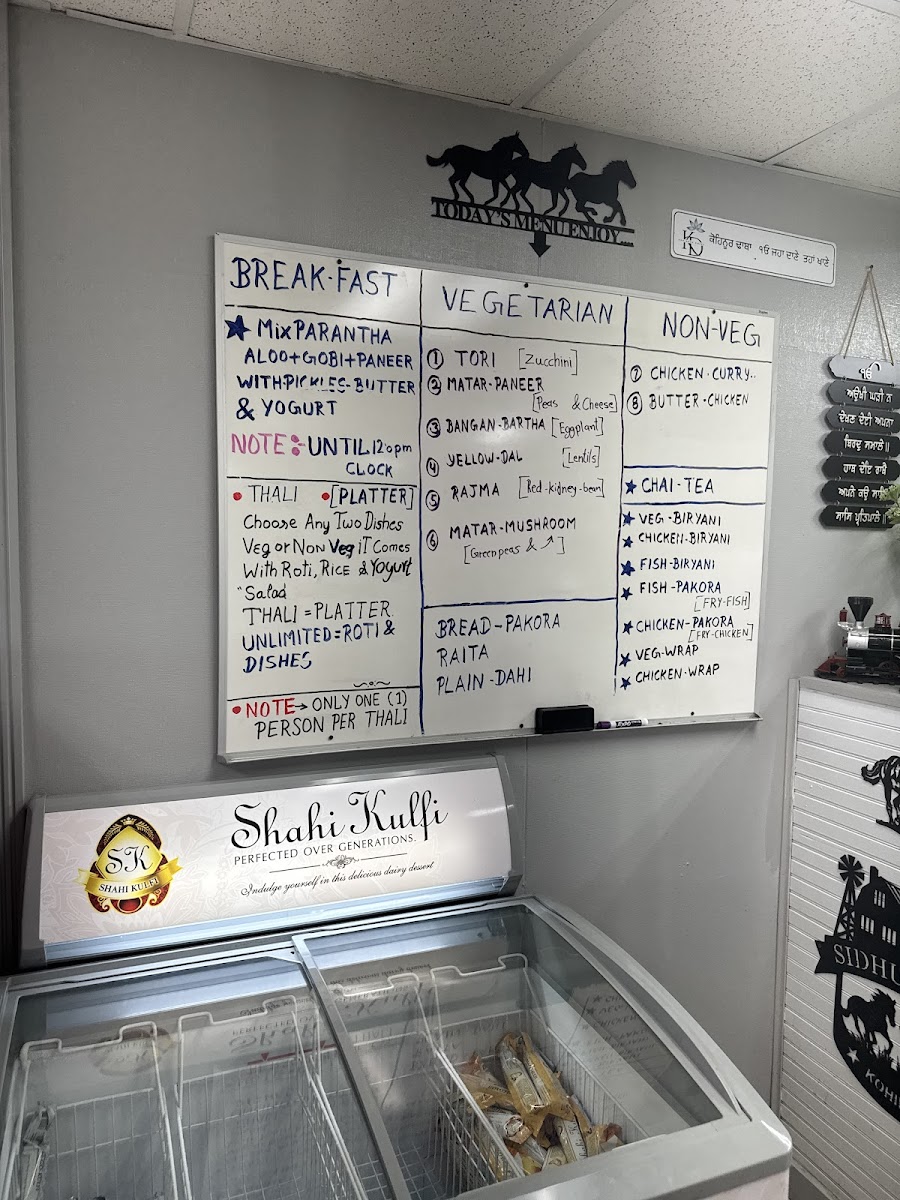 TODAY'S MENU ENJOY....
KD ਕੋਹਿਨੂਰ ਢਾਬਾ ੧ਓ ਜਹਾ ਦਾਣੇ ਤਹਾਂ ਖਾਣੇ
BREAK-FAST
★ Mix PARANTHA
ALOO+GOBI+PANEER
WITH PICKLES-BUTTER
& YOGURT
NOTE:- UNTIL 12:0pm
CLOCK
• THALI • [PLATTER]
Choose Any Two Dishes
Veg or Non Veg iT Comes
With Roti, RICE & Yogurt
"Salad
THALI = PLATTER.
UNLIMITED = ROTI &
DISHES
• NOTE → ONLY ONE (1)
PERSON PER THALI
VEGETARIAN
① TORI [Zucchini]
② MATAR-PANEER
[Peas & Cheese]
③ BANGAN-BARTHA [Eggplant]
④ YELLOW-DAL [Lentils]
⑤ RAJMA [Red-kidney-bean]
⑥ MATAR-MUSHROOM
[Green peas & ↗]
BREAD-PAKORA
RAITA
PLAIN-DAHI
NON-VEG
⑦ CHICKEN-CURRY..
⑧ BUTTER-CHICKEN
★ CHAI-TEA
★ VEG-BIRYANI
★ CHICKEN-BIRYANI
★ FISH-BIRYANI
★ FISH-PAKORA
[FRY-FISH]
★ CHICKEN-PAKORA
[FRY-CHICKEN]
★ VEG-WRAP
★ CHICKEN-WRAP
ੴ
ਅਉਖੀ ਘੜੀ ਨ
ਦੇਖਣ ਦੇਈ ਅਪਨਾ
ਬਿਰਦੁ ਸਮਾਲੇ॥
ਹਾਥ ਦੇਇ ਰਾਖੈ
ਅਪਨੇ ਕਉ ਸਾਸਿ
ਸਾਸਿ ਪ੍ਰਤਿਪਾਲੇ॥
SK
SHAHI KULFI
Shahi Kulfi
PERFECTED OVER GENERATIONS.
Indulge yourself in this delicious dairy dessert
SIDHU
KOHI